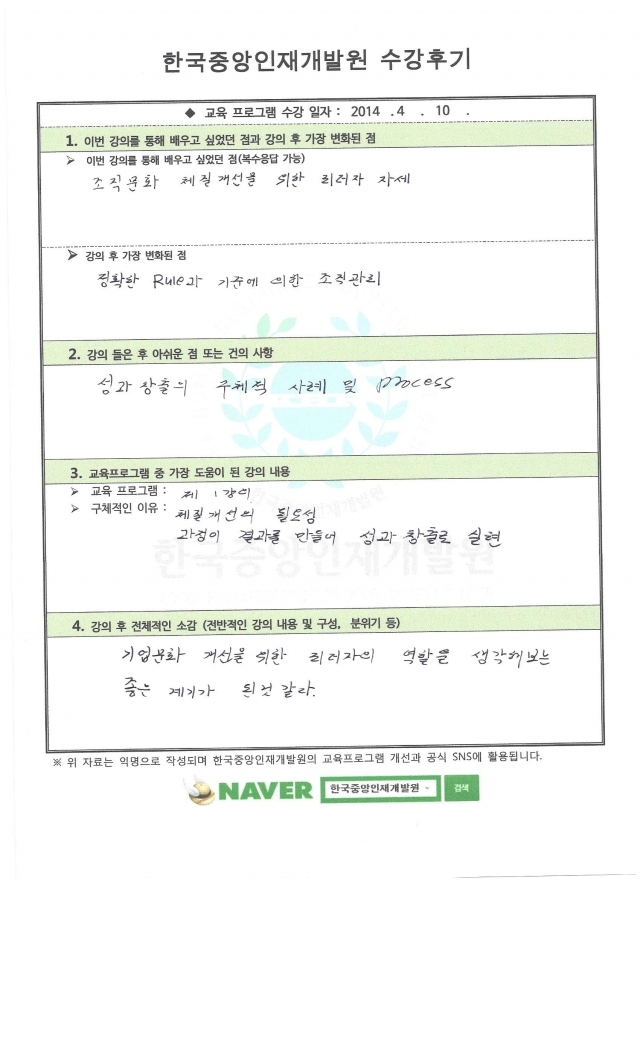 한국중앙인재개발원 수강후기
◆ 교육 프로그램 수강 일자 : 2014 . 4 . 10 .
1. 이번 강의를 통해 배우고 싶었던 점과 강의 후 가장 변화된 점
➢ 이번 강의를 통해 배우고 싶었던 점(복수응답 가능)
조직문화 체질개선을 위한 리더자 자세
➢ 강의 후 가장 변화된 점
정확한 Rule과 기준에 의한 조직관리
2. 강의 들은 후 아쉬운 점 또는 건의 사항
성과창출의 구체적 사례 및 process
3. 교육프로그램 중 가장 도움이 된 강의 내용
➢ 교육 프로그램 : 제 1강의
➢ 구체적인 이유 : 체질개선의 필요성
과정이 결과를 만들어 성과창출로 실현
한국중앙인재개발원
4. 강의 후 전체적인 소감 (전반적인 강의 내용 및 구성, 분위기 등)
기업문화 개선을 위한 리더자의 역할을 생각해보는
좋은 계기가 된것 같다.
※ 위 자료는 익명으로 작성되며 한국중앙인재개발원의 교육프로그램 개선과 공식 SNS에 활용됩니다.
NAVER 한국중앙인재개발원 검색